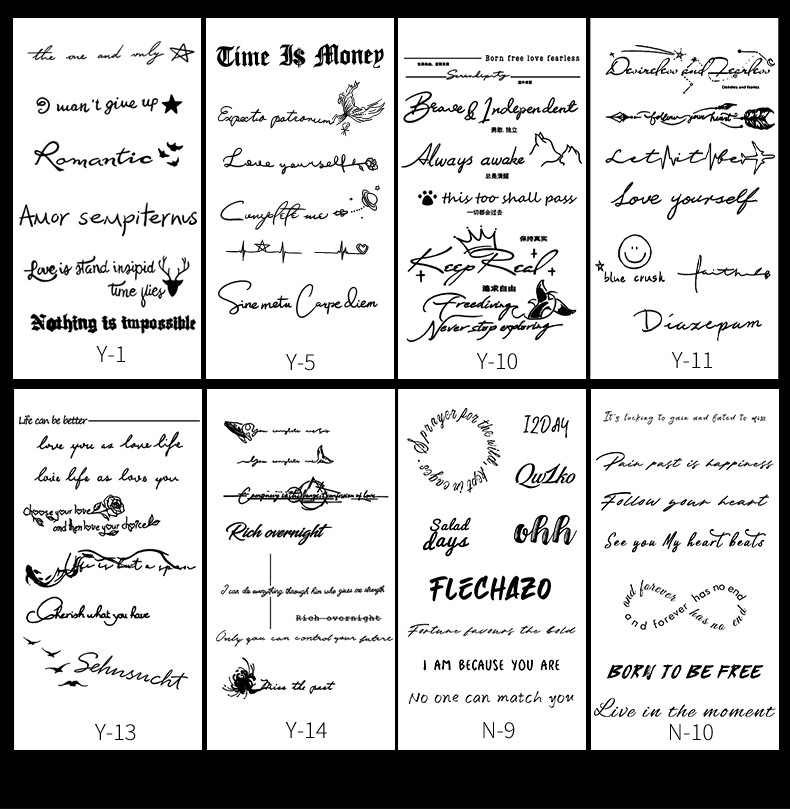 the one and only
I won't give up
Romantic
Amor sempiternus
Love is stand insipid
time flies
Nothing is impossible
Y-1
Time I$ Money
Expecto patronum
Love yourself
Complete me
Sine metu Carpe diem
Y-5
Born free love fearless
Serendipity
Brave & Independent
勇敢 独立
Always awake
总是清醒
this too shall pass
一切都会过去
保持真实
Keep Real
追求自由
Freediving
Never stop exploring
Y-10
Desireless and Fearless
follow your heart
Let it be
Love yourself
blue crush
faith
Diazepam
Y-11
Life can be better
love you as love life
love life as love you
Choose your love
and then love your choice
life is but a span
Cherish what you have
Sehnsucht
Y-13
you complete me
you complete me
Company is the longest confession of love
Rich overnight
I can do everything through him who gives me strength
Rich overnight
Only you can control your future
Miss the past
Y-14
S prayer for the wild, kept in cages
Salad
days
ohh
FLECHAZO
Fortune favours the bold
I AM BECAUSE YOU ARE
No one can match you
N-9
It's lucking to gain and fated to miss
Pain past is happiness
Follow your heart
See you My heart beats
and forever has no end
and forever has no end
BORN TO BE FREE
Live in the moment
N-10